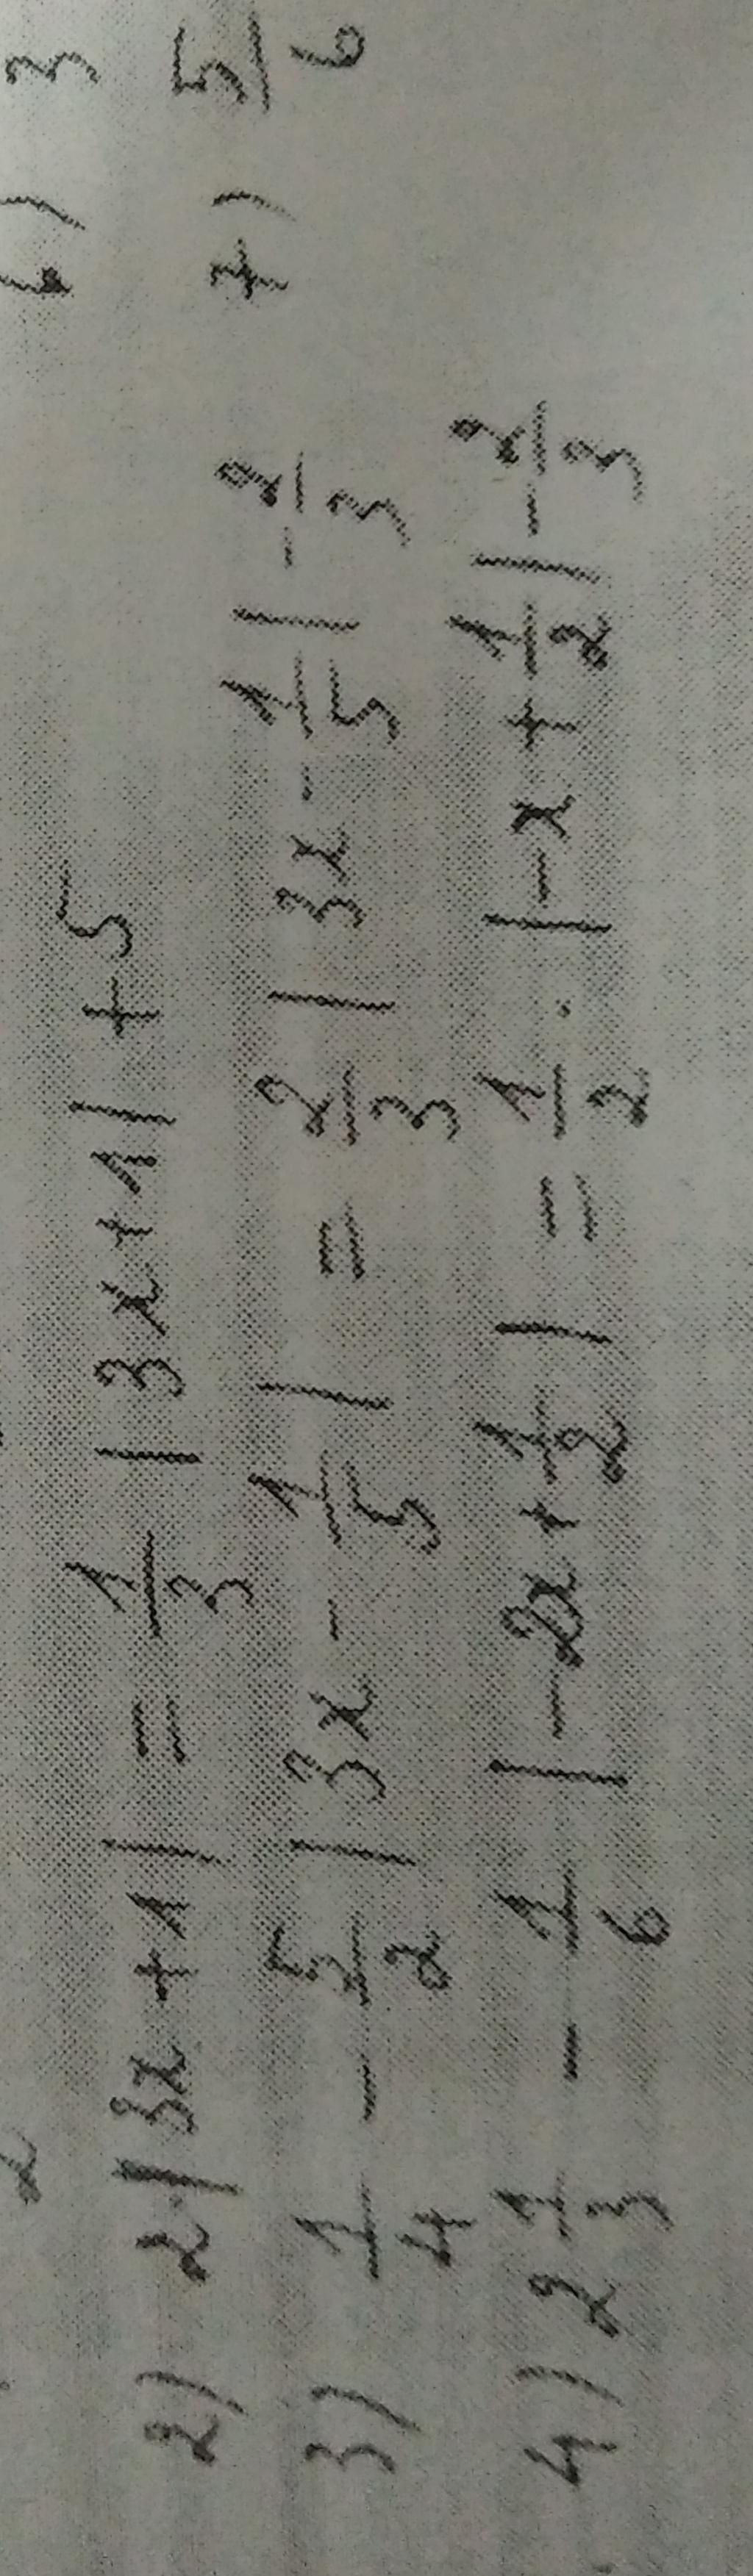 2) 2·|3x+1| = 1/3 |3x+1| + 5
3) 1/4 - 5/2 |3x - 1/5| = 2/3 |3x - 1/5| - 2/3
4) 2 1/3 - 1/6 |-2x + 1/2| = 1/2 · |-x + 1/2| - 2/3
6) 3
7) 5/6